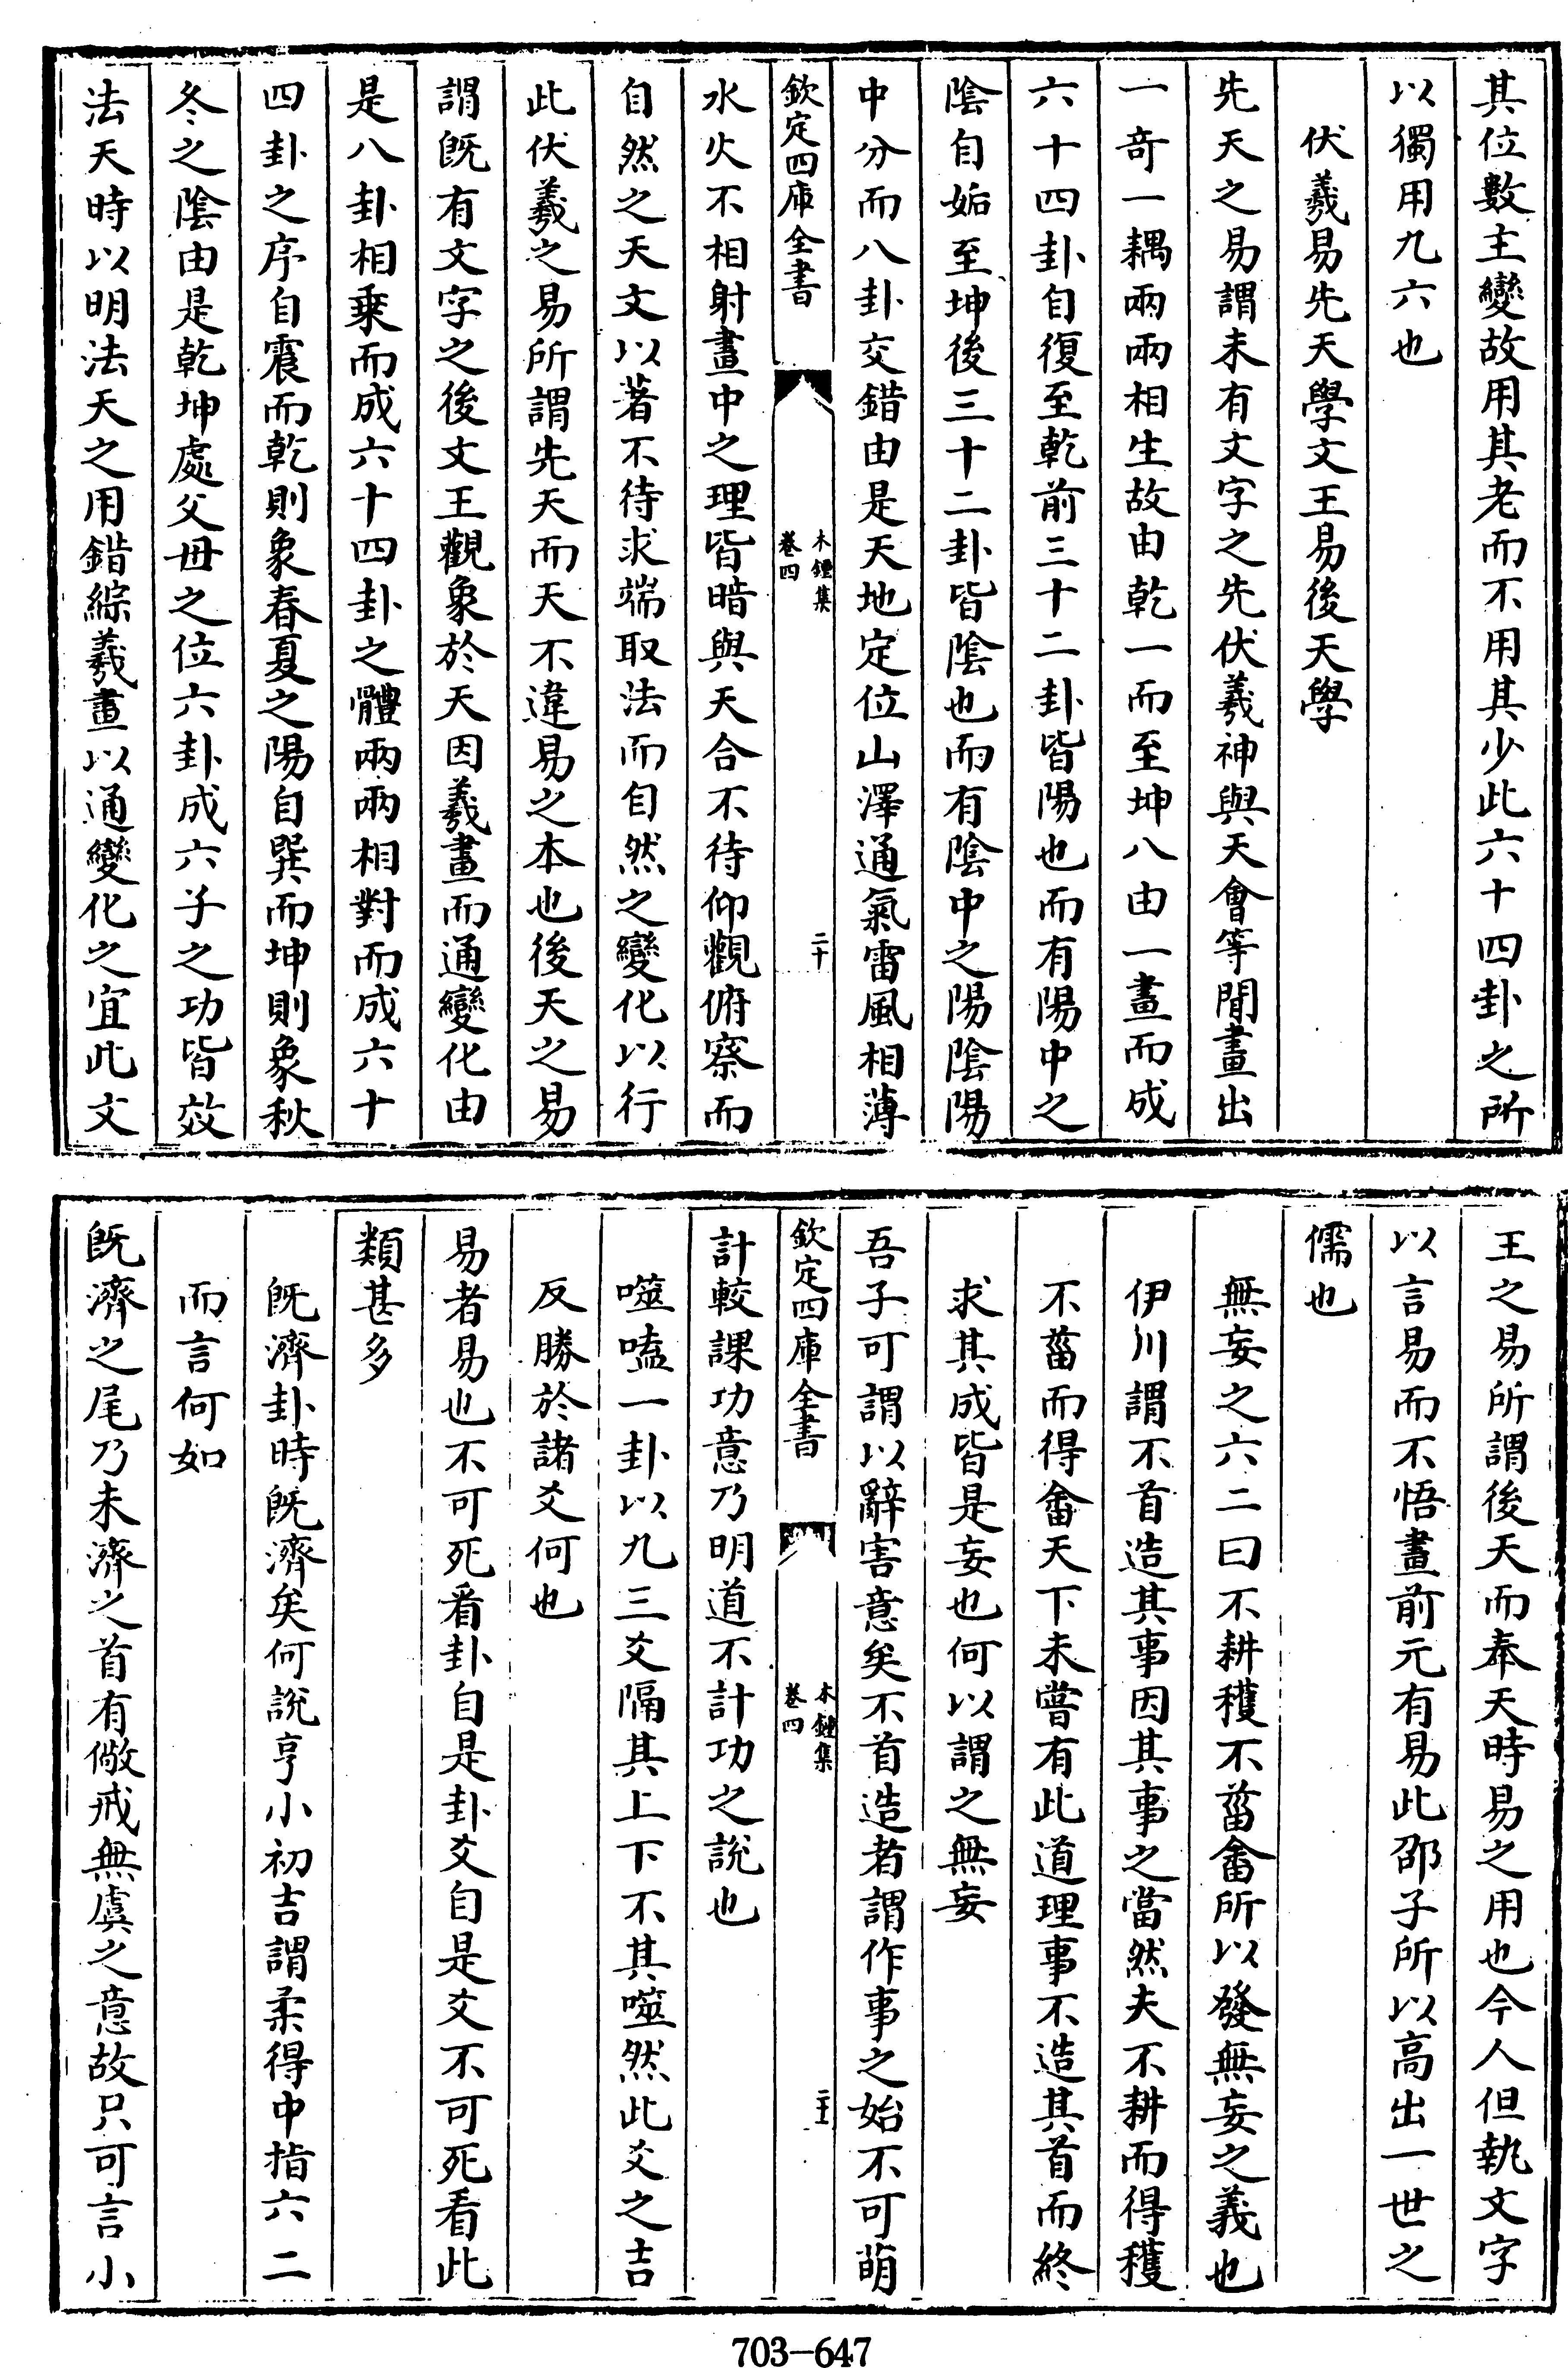 其位數主變故用其老而不用其少此六十四卦之所
以獨用九六也
伏羲易先天學文王易後天學
先天之易謂未有文字之先伏羲神與天會等閒畫出
一奇一耦兩兩相生故由乾一而至坤八由一畫而成
六十四卦自復至乾前三十二卦皆陽也而有陽中之
陰自姤至坤後三十二卦皆陰也而有陰中之陽陰陽
中分而八卦交錯由是天地定位山澤通氣雷風相薄
欽定四庫全書
木鍾集
卷四
二十
水火不相射畫中之理皆暗與天合不待仰觀俯察而
自然之天文以著不待求端取法而自然之變化以行
此伏羲之易所謂先天而天不違易之本也後天之易
謂旣有文字之後文王觀象於天因羲畫而通變化由
是八卦相乗而成六十四卦之體兩兩相對而成六十
四卦之序自震而乾則象春夏之陽自巽而坤則象秋
冬之陰由是乾坤處父母之位六卦成六子之功皆效
法天時以明法天之用錯綜羲畫以通變化之宜此文
王之易所謂後天而奉天時易之用也今人但執文字
以言易而不悟畫前元有易此邵子所以高出一世之
儒也
無妄之六二曰不耕穫不菑畬所以發無妄之義也
伊川謂不首造其事因其事之當然夫不耕而得穫
不菑而得畬天下未嘗有此道理事不造其首而終
求其成皆是妄也何以謂之無妄
吾子可謂以辭害意矣不首造者謂作事之始不可萌
欽定四庫全書
木鍾集
卷四
二十一
計較課功意乃明道不計功之說也
噬嗑一卦以九三爻隔其上下不其噬然此爻之吉
反勝於諸爻何也
易者易也不可死看卦自是卦爻自是爻不可死看此
類甚多
旣濟卦時旣濟矣何說亨小初吉謂柔得中指六二
而言何如
旣濟之尾乃未濟之首有儆戒無虞之意故只可言小
703-647